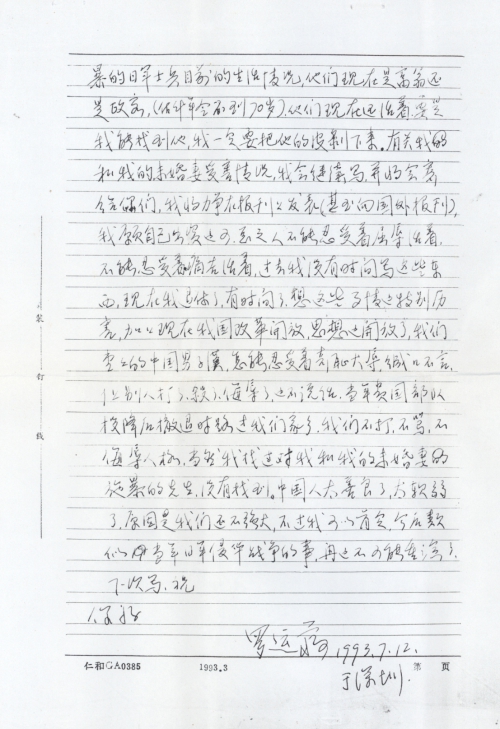 暴的日军士兵目前的生活情况,他们现在是富翁还
是政客,(估计年令不到70岁),他们现在还活着,要是
我能找到他,我一定要把他的皮剥下来。有关我的
和我的未婚妻受害情况,我会继续写,并将会寄
给你们,我将力争在报刊上发表(甚至向国外报刊),
我愿自己出资也可,至之人不能忍受着屈辱活着,
不能忍受着痛苦活着,过去我没有时间写这些东
西,现在我退休了,有时间了,想这些事情也特别历
害,加上现在我国改革开放,思想也开放了,我们
堂堂的中国男子汉,怎能忍受着奇耻大辱缄口不言,
让别人打了,杀了,侮辱了,也不说话,当年贵国部队
投降后撤退时路过我们家乡,我们不打,不骂,不
侮辱人格,当然我找过对我和我的未婚妻
施暴的先生,没有找到。中国人太善良了,太软弱
了,原因是我们还不强大,不过我可以肯定,今后类
似当年日军侵华战争的事,再也不可能重演了。
下次写,祝
罗运 1993.7.12.
于深圳
仁和GA0385 1993.3 第 页
装 订 线